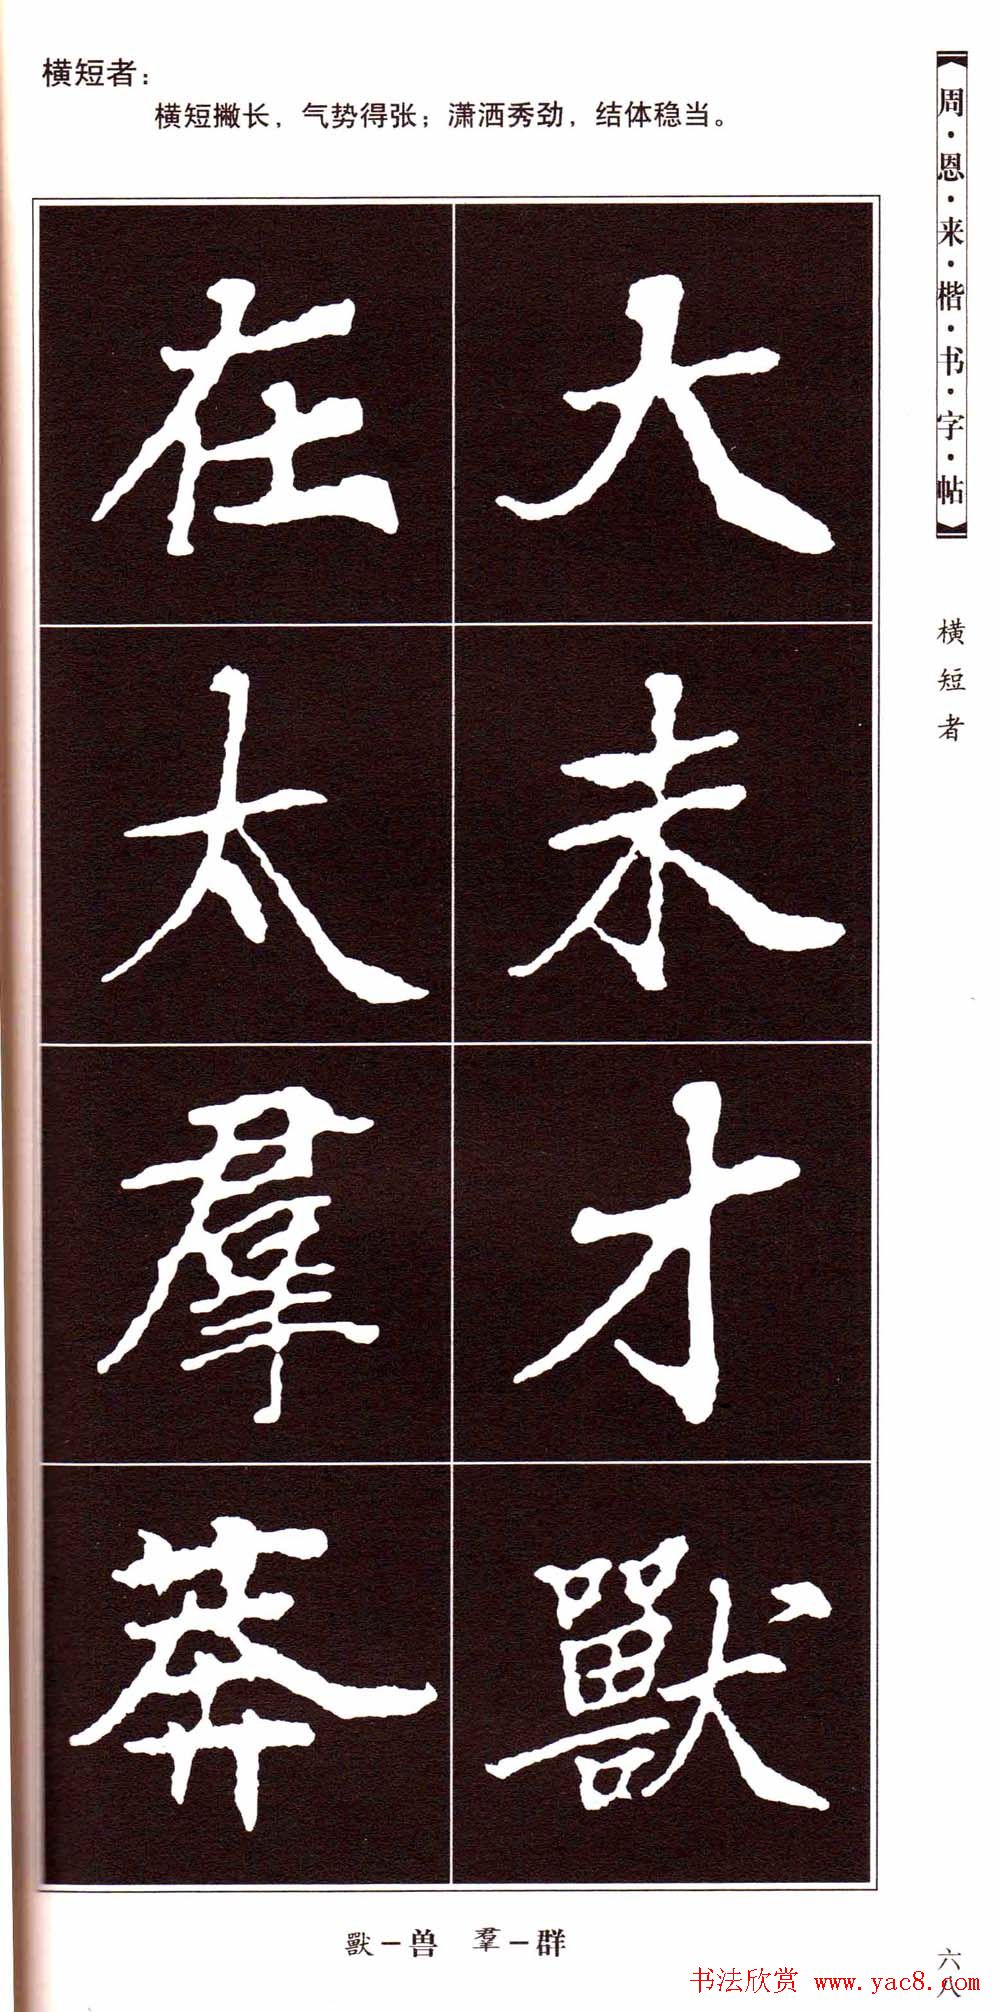 横短者：
横短撇长，气势得张；潇洒秀劲，结体稳当。
周·恩·来·楷·书·字·帖
横短者
大未才獸
在太羣莽
獸－兽 羣－群
六八
书法欣赏 www.yac8.com